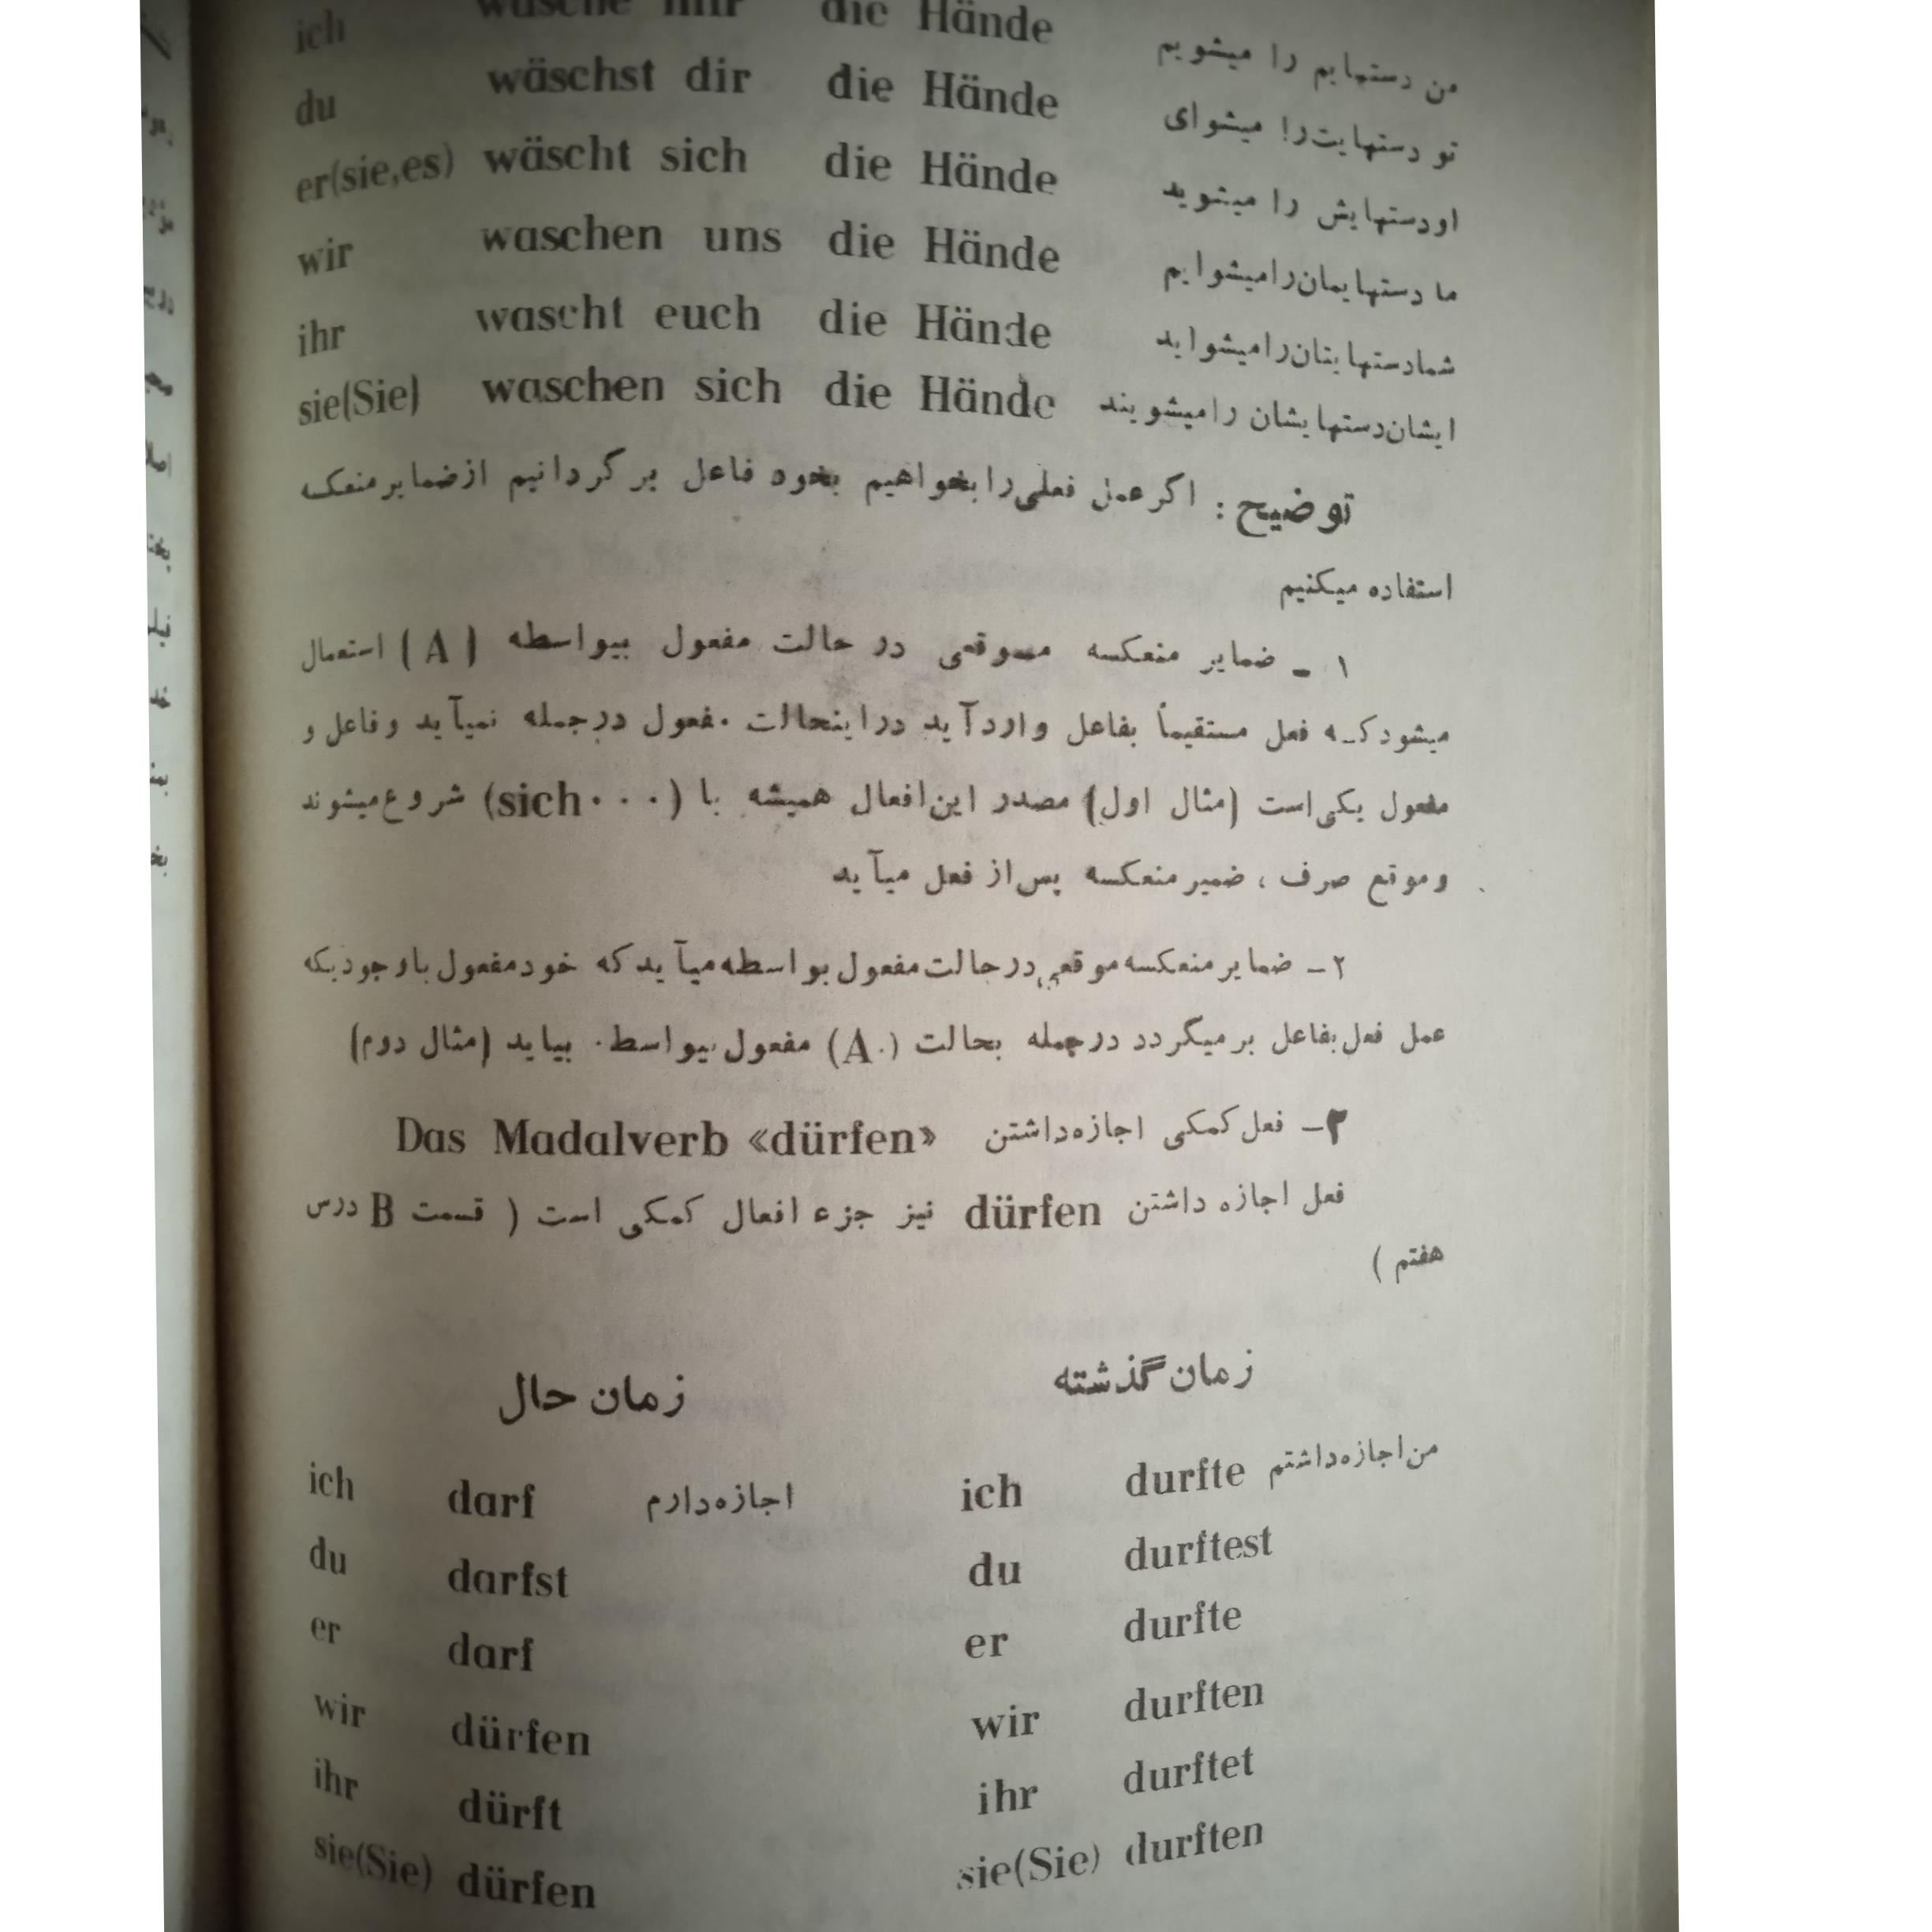 ich wasche mir die Hände من دستهایم را میشویم
du wäschst dir die Hände تو دستهایت را میشوای
er(sie,es) wäscht sich die Hände او دستهایش را میشوید
wir waschen uns die Hände ما دستهایمان را میشوایم
ihr wascht euch die Hände شما دستهایتان را میشواید
sie(Sie) waschen sich die Hände ایشان دستهایشان را میشویند
توضیح : اگر عمل فعلی را بخواهیم بخود فاعل برگردانیم از ضمایر منعکسه
استفاده میکنیم
۱ ـ ضمایر منعکسه موقعی در حالت مفعول بیواسطه (A) استعمال
میشود که فعل مستقیماً بفاعل وارد آید در اینحالت مفعول در جمله نمیآید و فاعل و
مفعول یکی است (مثال اول) مصدر این افعال همیشه با (sich . . .) شروع میشوند
و موقع صرف ، ضمیر منعکسه پس از فعل میآید
۲ـ ضمایر منعکسه موقعی در حالت مفعول بواسطه میآید که خود مفعول با وجودیکه
عمل فعل بفاعل برمیگردد در جمله بحالت (A.) مفعول بیواسطه بیاید (مثال دوم)
۳ـ فعل کمکی اجازه داشتن Das Madalverb «dürfen»
فعل اجازه داشتن dürfen نیز جزء افعال کمکی است ( قسمت B درس
هفتم )
زمان حال زمان گذشته
ich darf اجازه دارم ich durfte من اجازه داشتم
du darfst du durftest
er darf er durfte
wir dürfen wir durften
ihr dürft ihr durftet
sie(Sie) dürfen sie(Sie) durften